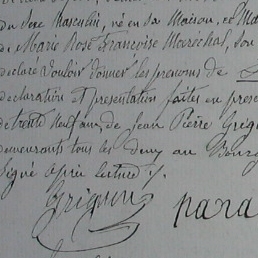 du sexe masculin, né en sa Maison, ce Ma
de Marie Rose Françoise Maréchal, son
déclaré vouloir donner les prénoms de
déclaration et présentation faites en prese
de trente neuf ans, de Jean Pierre Grég
demeurants tous les deux au Bourg
Signé après lecture ./.
Grignon para